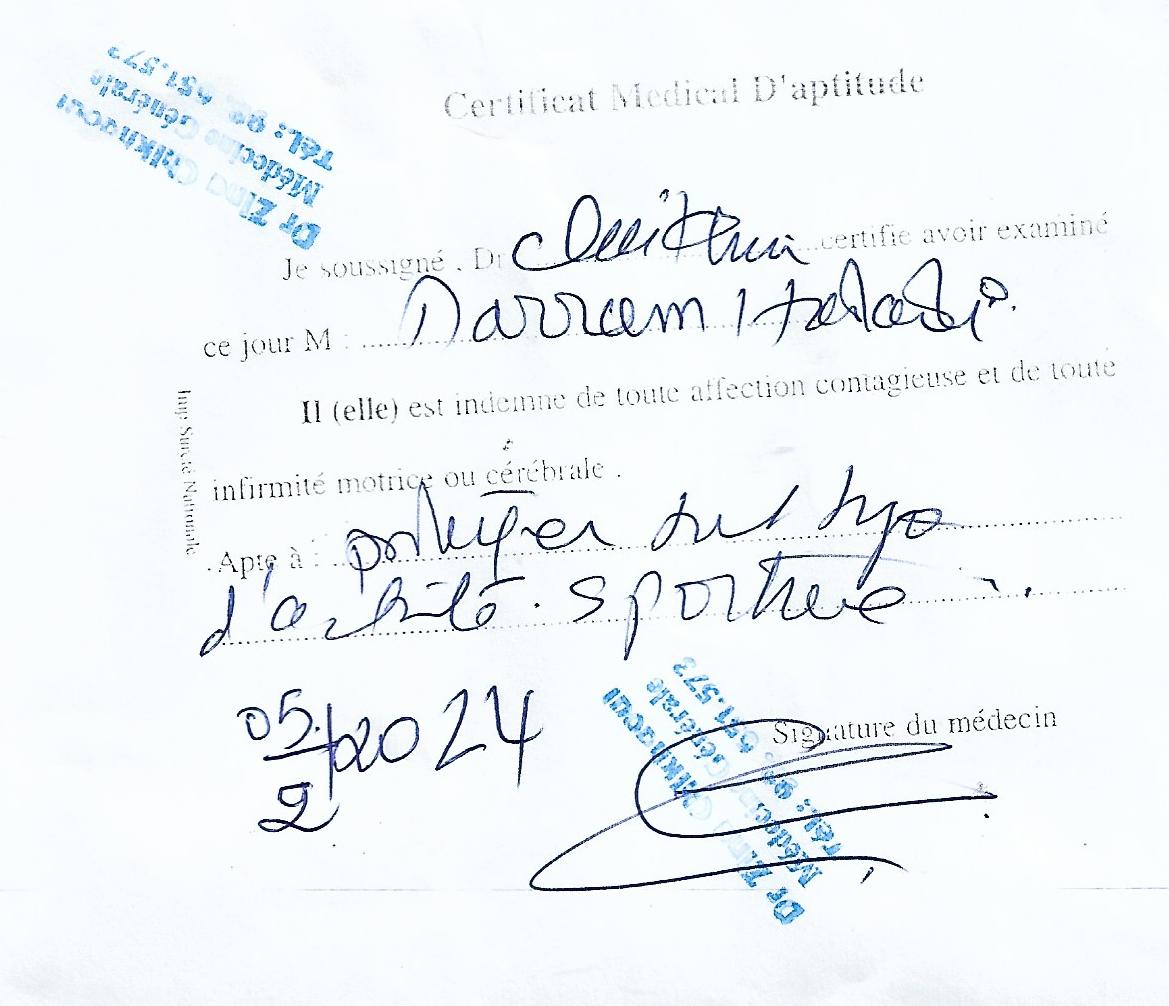 Dr Zina Chikhaoui
Médecine Générale
Tél: 651.573
Certificat Medical D'aptitude
Je soussigné . Dr certifie avoir examiné
ce jour M : Darram
Il (elle) est indemne de toute affection contagieuse et de toute
infirmité motrice ou cérébrale .
Imp Sureté Nationale
Apte à : pratiquer tout type
d'activité sportive
05/2/2024
Signature du médecin
Dr Zina Chikhaoui
Médecine Générale
Tél: 651.573